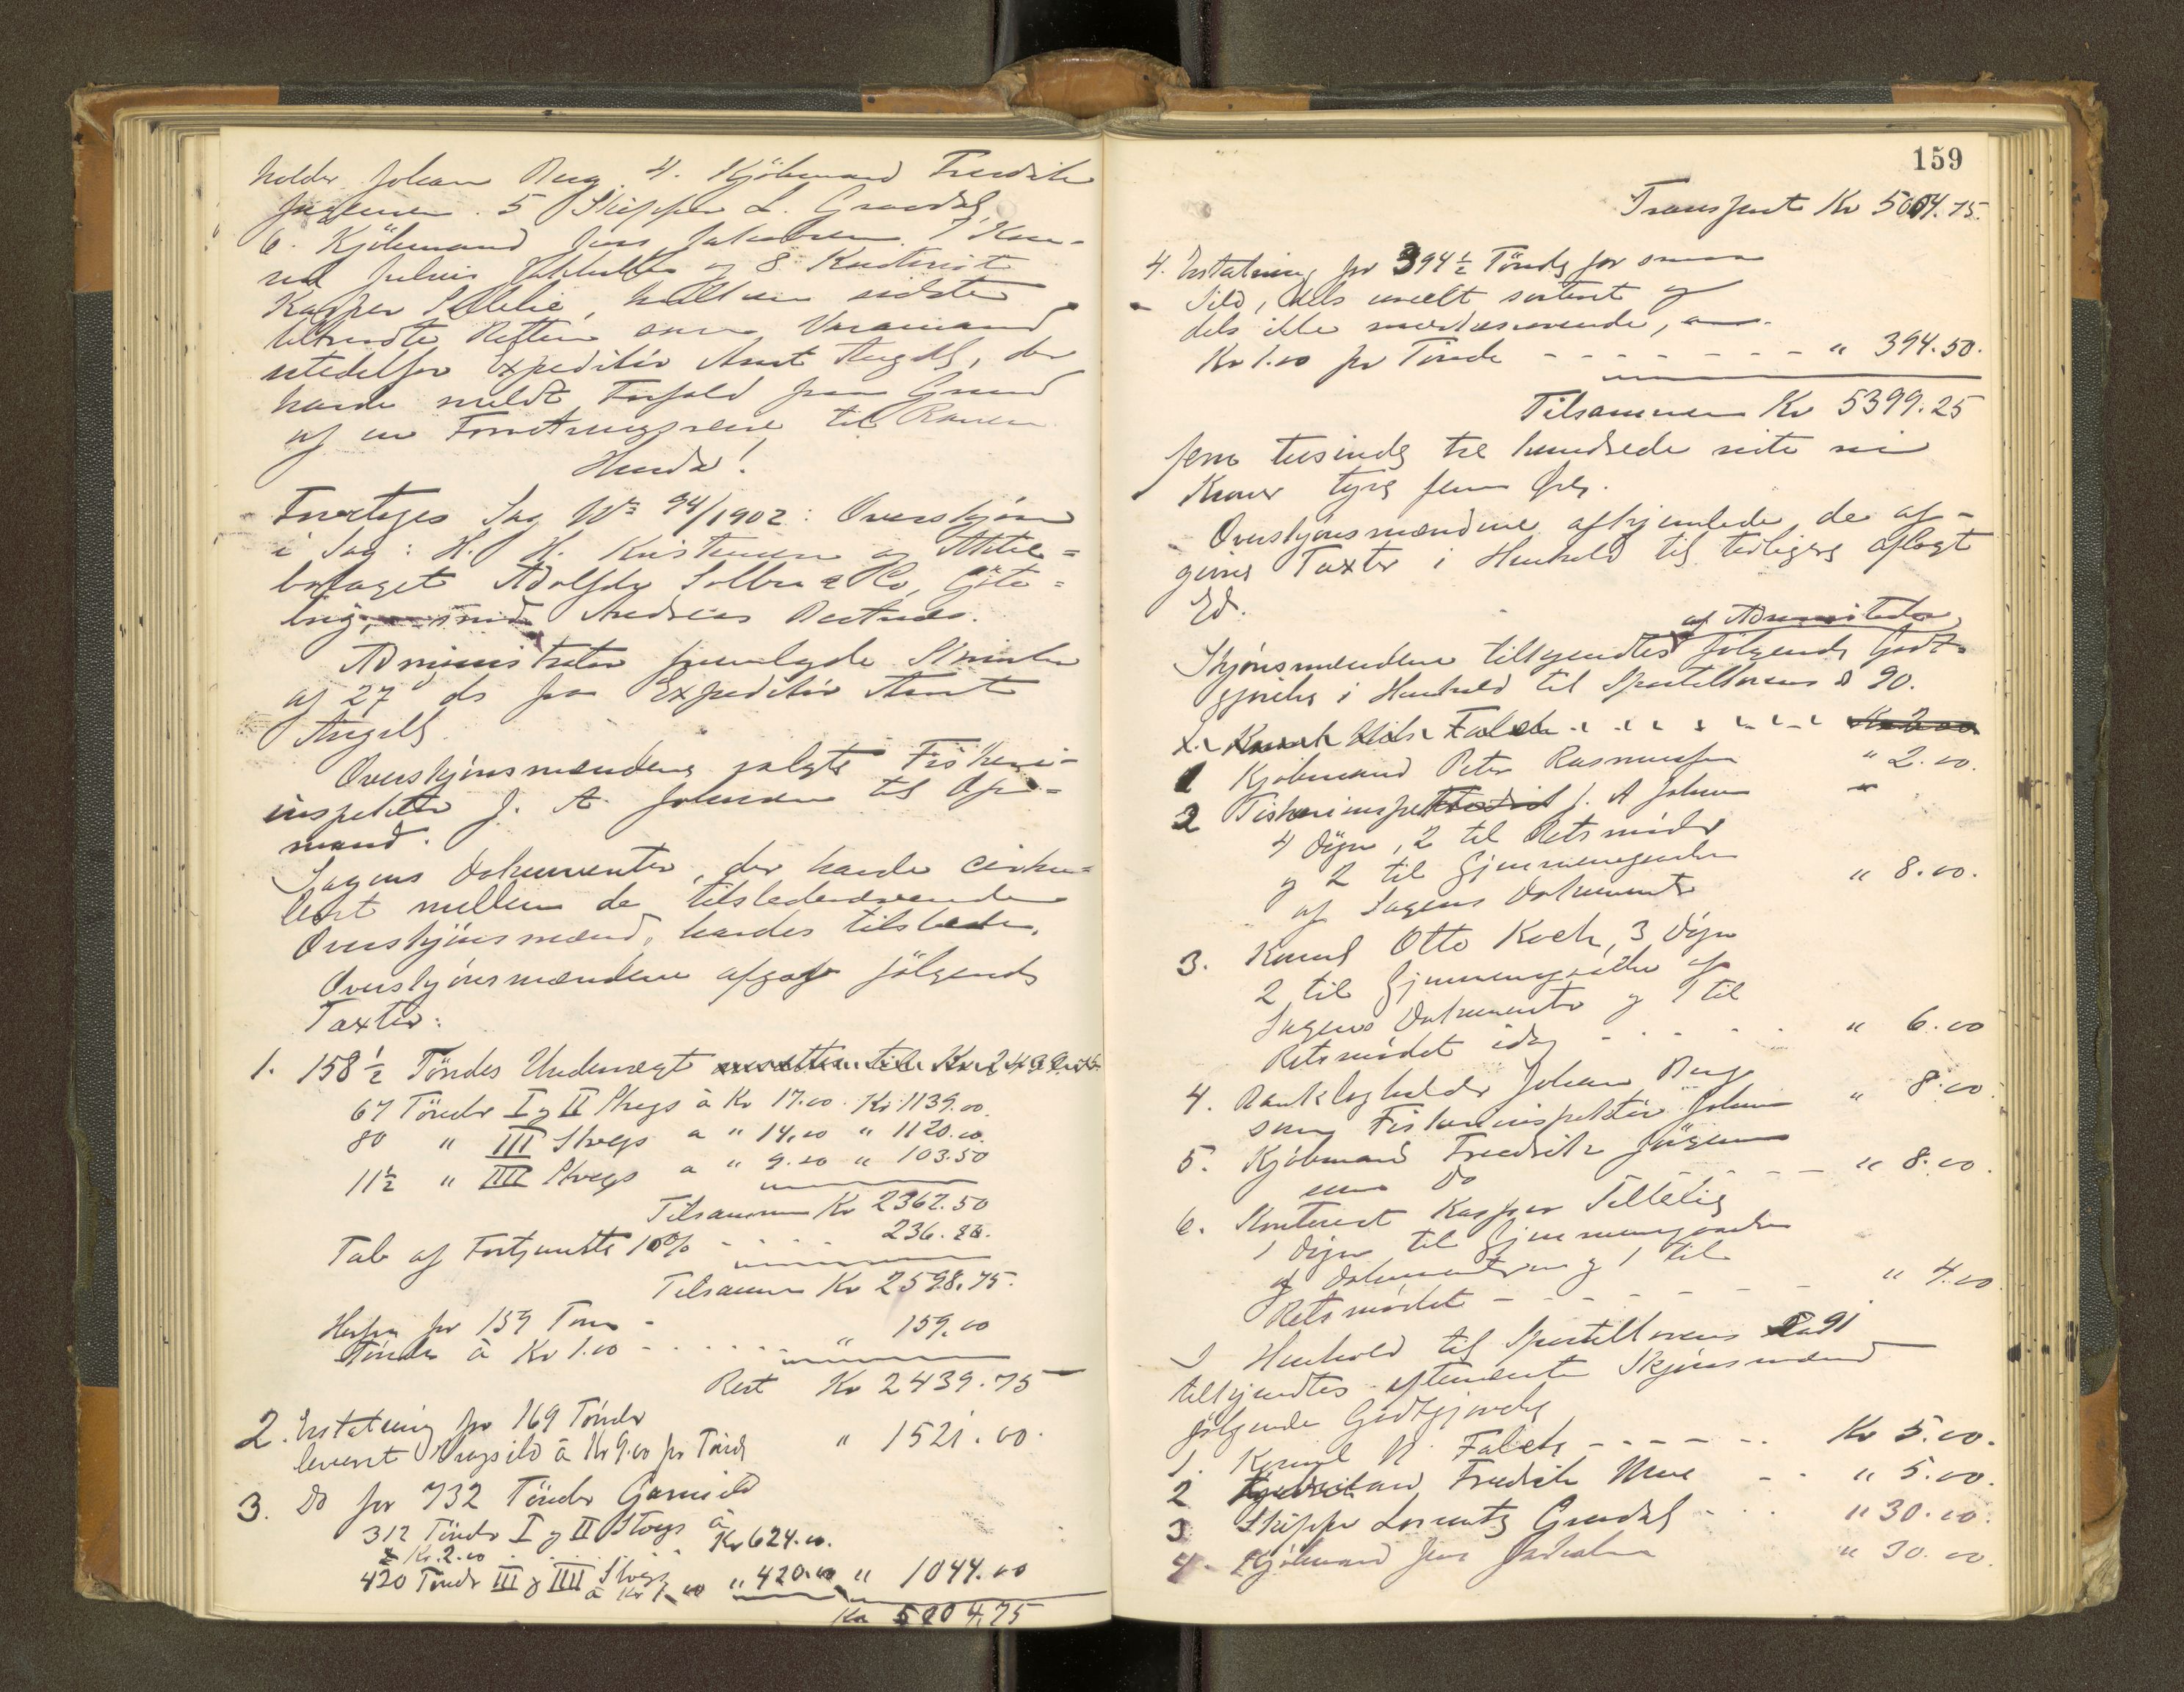 holder Johan Berg. 4. Kjöbmand Fredrik
Jörgensen. 5 Skipper L. Grøndahl,
6. Kjöbmand Jens Jakobsen 7 Kon-
sul Julius og 8 Kontorist
Kasper Selletie, hvilken sidste
tiltrædte Retten som Varamand
istedetfor Expeditör Arnt Angell, der
havde meldt Forfald paa Grund
af en Forretningsreise til Ranen
Hvorda!
Foretoges Sag No 94/1902: Overskjøn
i Sag: H. H. Kristensen og Aktie=
bolaget Adolfsby Solberg & Co, Göte=
borg, mod Andreas Aartnes.
Administrator fremlagde Skrivelse
af 27 ds fra Expeditör Arnt
Angell.
Overskjønsmændene valgte Fiskeri-
inspektör J. A. Johnsen til Op-
mand.
Sagens Dokumenter, der havde cirku-
leret mellem de tilstedeværende
Overskjönsmænd, havdes tilstede.
Overskjønsmændene afgav følgende
Taxter:
1. 158 1/2 Tönder Undervægt
67 Tönder I og II Slags à Kr 17.00 Kr 1139.00.
80 " III Slags a " 14.00 " 1120.00.
11 1/2 " IIII Slags a " 9.00 " 103.50
Tilsammen Kr 2362.50
Tab af Fortjeneste 10% - - - - 236.25.
Tilsammen Kr 2598.75.
Herfra for 159 Tom-
tönder à Kr 1.00 - - - - - " 159.00
Rest Kr 2439.75
2. Erstatning for 169 Tönder
leveret Vragsild à Kr 9.00 pr Tönde " 1521.00.
3. Do for 732 Tönder Garnsild
312 Tönder I og II Slags à
Kr. 2.00 - - - Kr 624.00.
420 Tönder III og IIII Slags
à Kr 1.00 " 420.00 " 1044.00
Kr 5004.75
159
Transport Kr 5004.75.
4. Erstatning for 394 1/2 Tönde for smaa
Sild, dels uveelt sorteret og
dels ikke
Kr 1.00 pr Tönde - - - - - - - " 394.50.
Tilsammen Kr 5399.25
fem tusinde tre hundrede nite ni
Kroner tyve fem Öre.
Overskjønsmændene afhjemlede de af-
givne Taxter i Henhold til tidligere aflagt
Ed.
af Administrator
Skjønsmændene tilkjendtes følgende Godt-
gjørelse i Henhold til Sportellovens § 90.
1. Konsul Nils Falck - - - - - - - - Kr 2.00
1 Kjöbmand Peter Rasmussen " 2.00.
2 Fiskeriinspektör J. A Johnsen
4 Dögn, 2 til Retsmøder
og 2 til Gjennemgaaelse
af Sagens Dokumenter " 8.00.
3. Konsul Otto Koch, 3 Dögn
2 til Gjennemgaaelse af
Sagens Dokumenter og 1 til
Retsmødet idag - - - - " 6.00
4. Banklogholder Johan Berg
som Fiskeriinspektör Johnsen " 8.00.
5. Kjöbmand Fredrik Jörgensen
som Do - - - - - " 8.00.
6. Kontorist Kasper Selletie
1 Dögn til Gjennemgaaelse
af Dokumenterne og 1 til
Retsmødet - - - - - - - " 4.00
I Henhold til Sportellovens § 91
tilkjendtes efternævnte Skjönsmænd
følgende Godtgjørelse
1. Konsul N. Falck - - - - - Kr 5.00.
2 Fredrik Moe - - " 5.00.
3 Skipper Lorentz Grøndahl - - " 30.00.
4. Kjöbmand Jens Jakobsen " 30.00.